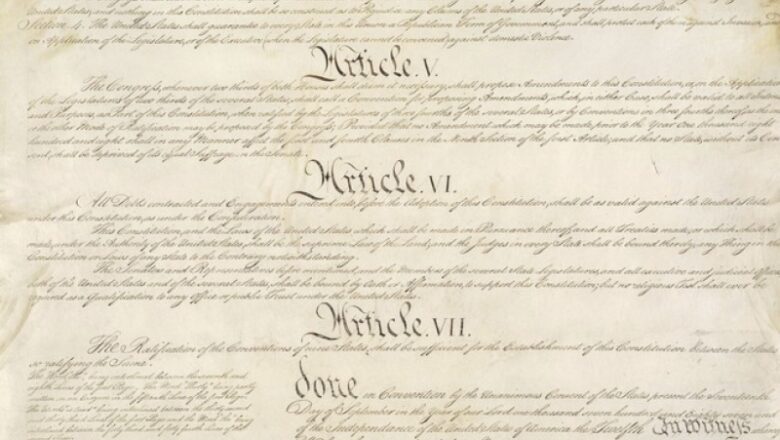 Section 4. The United States shall guarantee to every State in this Union a Republican Form of Government, and shall protect each of them against Invasion; and
on Application of the Legislature, or of the Executive (when the Legislature cannot be convened) against domestic Violence.
Article. V.
The Congress, whenever two thirds of both Houses shall deem it necessary, shall propose Amendments to this Constitution, or, on the Application
of the Legislatures of two thirds of the several States, shall call a Convention for proposing Amendments, which, in either Case, shall be valid to all Intents
and Purposes, as Part of this Constitution, when ratified by the Legislatures of three fourths of the several States, or by Conventions in three fourths thereof, as the one
or the other Mode of Ratification may be proposed by the Congress; Provided that no Amendment which may be made prior to the Year One thousand eight
hundred and eight shall in any Manner affect the first and fourth Clauses in the Ninth Section of the first Article; and that no State, without its Con
sent, shall be deprived of its equal Suffrage in the Senate.
Article. VI.
All Debts contracted and Engagements entered into, before the Adoption of this Constitution, shall be as valid against the United States
under this Constitution, as under the Confederation.
This Constitution, and the Laws of the United States which shall be made in Pursuance thereof; and all Treaties made, or which shall be
made, under the Authority of the United States, shall be the supreme Law of the Land; and the Judges in every State shall be bound thereby, any Thing in the
Constitution or Laws of any State to the Contrary notwithstanding.
The Senators and Representatives before mentioned, and the Members of the several State Legislatures, and all executive and judicial Officers,
both of the United States and of the several States, shall be bound by Oath or Affirmation, to support this Constitution; but no religious Test shall ever be
required as a Qualification to any Office or public Trust under the United States.
Article. VII.
The Ratification of the Conventions of nine States, shall be sufficient for the Establishment of this Constitution between the States
so ratifying the Same.
done in Convention by the Unanimous Consent of the States present the Seventeenth
Day of September in the Year of our Lord one thousand seven hundred and Eighty seven and
of the Independance of the United States of America the Twelfth In witness